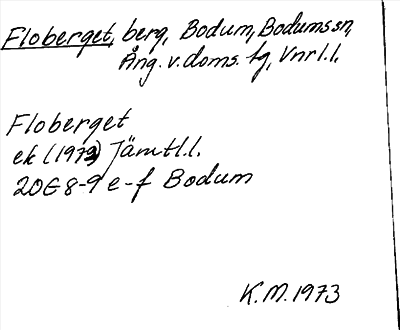 Floberget, berg, Bodum, Bodums sn,
Ång. v. doms. tg, Vnrl.l.
Floberget
ek (1973) Jämtl.l.
20G 8-9 e-f Bodum
K.M. 1973